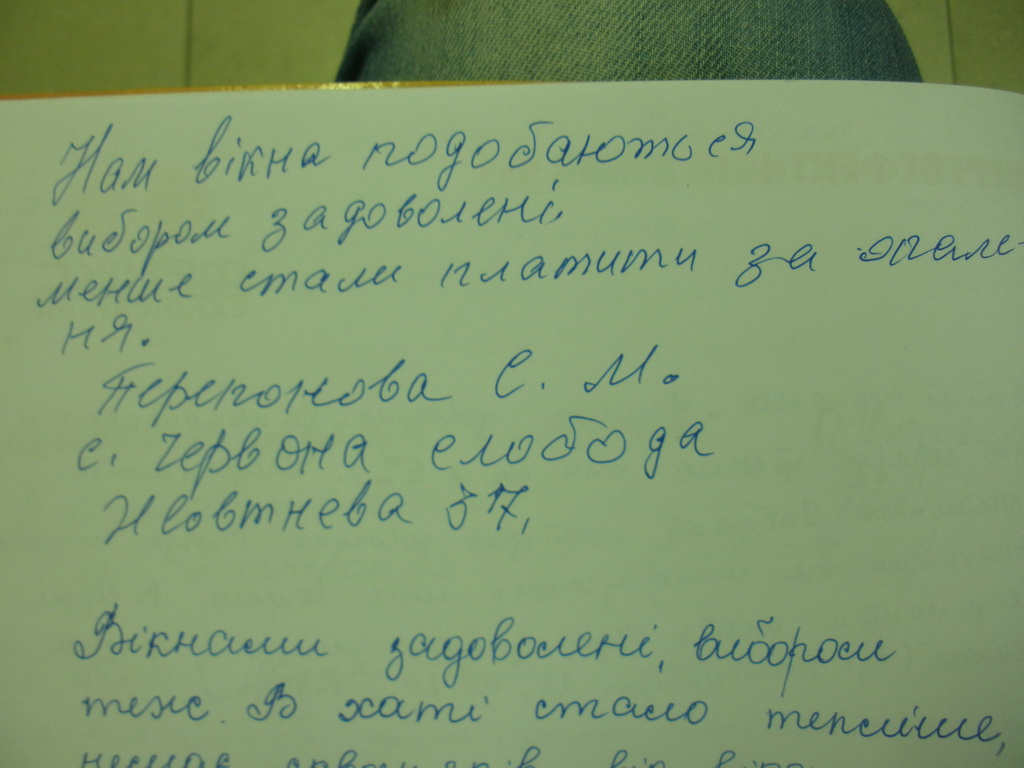 Нам вікна подобаються
вибором задоволені,
менше стали платити за опале-
ня.
Перепонова Є. М.
с. Червона слобода
Жовтнева 37,
Вікнами задоволені, вибором
теж. В хаті стало тепліше,
немає